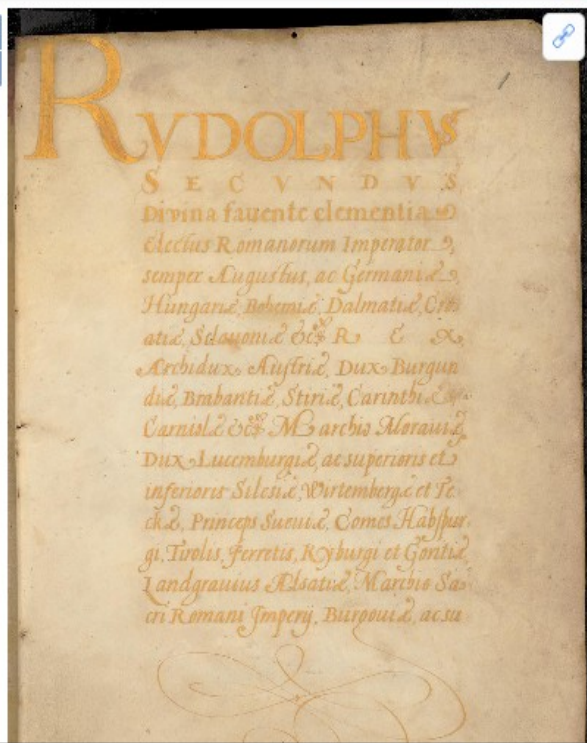 RVDOLPHVS
SECVNDVS
Divina favente clementia
Electus Romanorum Imperator,
semper Augustus, ac Germaniæ,
Hungariæ, Bohemiæ, Dalmatiæ, Cro
atiæ, Sclavoniæ &c. REX
Archidux Austriæ, Dux Burgun
diæ, Brabantiæ, Stiriæ, Carinthiæ
Carniolæ &c. Marchio Moraviæ,
Dux Lucemburgiæ, ac superioris et
inferioris Silesiæ, Wirtembergæ et Te
ckæ, Princeps Sueviæ, Comes Habspur
gi, Tirolis, Ferretis, Kyburgi et Goritiæ,
Landgravius Alsatiæ, Marchio Sa
cri Romani Imperij, Burgoviæ, ac su